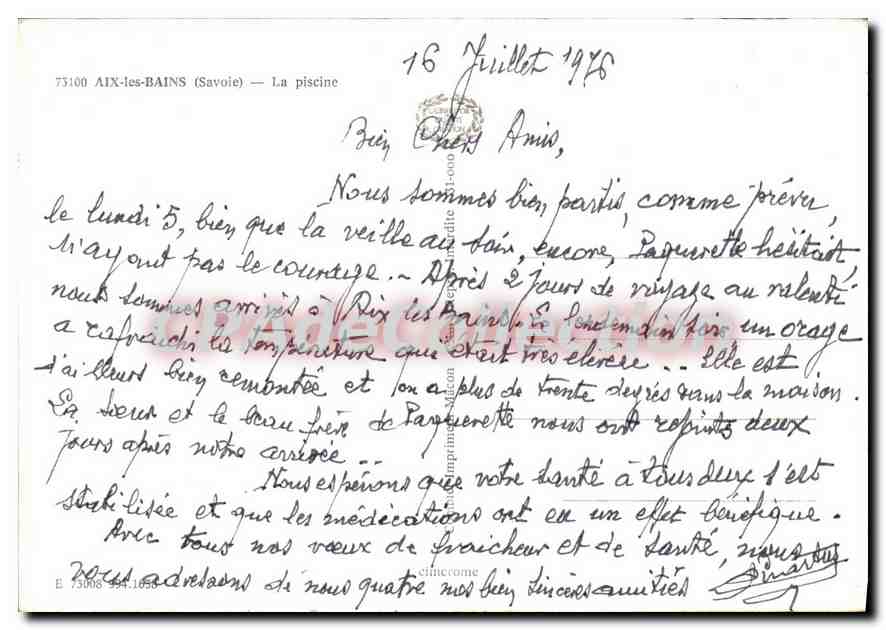 73100 AIX-les-BAINS (Savoie) — La piscine
16 Juillet 1976
Bien Chers Amis,
Nous sommes bien partis, comme prévu,
le lundi 5, bien que la veille au soir, encore, Paquerette hésitait,
n'ayant pas le courage. - Après 2 jours de voyage au ralenti
nous sommes arrivés à Aix les Bains. Le lendemain soir un orage
a rafraichi la température qui était très élevée ... Elle est
d'ailleurs bien remontée et on a plus de trente degrés dans la maison.
La soeur et le beau frère de Paquerette nous ont rejoints deux
jours après notre arrivée ...
Nous espérons que votre santé à tous deux s'est
stabilisée et que les médications ont eu un effet bénéfique.
Avec tous nos vœux de fraicheur et de santé, nous
vous adressons de nous quatre nos bien sincères amitiés
E 73008 994.1056
cimcrome
CPAdeCollection